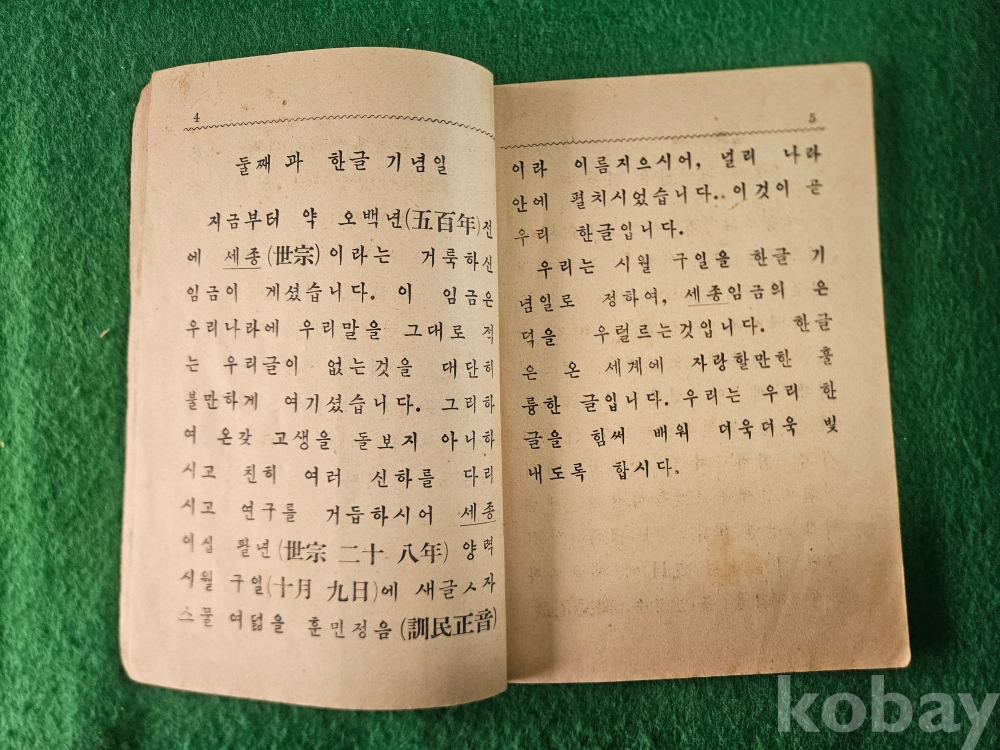 4
둘째 과 한글 기념일
지금부터 약 오백년(五百年)전
에 세종(世宗)이라는 거룩하신
임금이 계셨습니다. 이 임금은
우리나라에 우리말을 그대로 적
는 우리글이 없는것을 대단히
불만하게 여기셨습니다. 그리하
여 온갖 고생을 돌보지 아니하
시고 친히 여러 신하를 다리
시고 연구를 거듭하시어 세종
이십 팔년(世宗 二十 八年) 양력
시월 구일(十月 九日)에 새글ㅅ자
스물 여덟을 훈민정음(訓民正音)
5
이라 이름지으시어, 널리 나라
안에 펼치시었습니다. 이것이 곧
우리 한글입니다.
우리는 시월 구일을 한글 기
념일로 정하여, 세종임금의 은
덕을 우럴르는것입니다. 한글
은 온 세계에 자랑할만한 훌
륭한 글입니다. 우리는 우리 한
글을 힘써 배워 더욱더욱 빛
내도록 합시다.
kobay